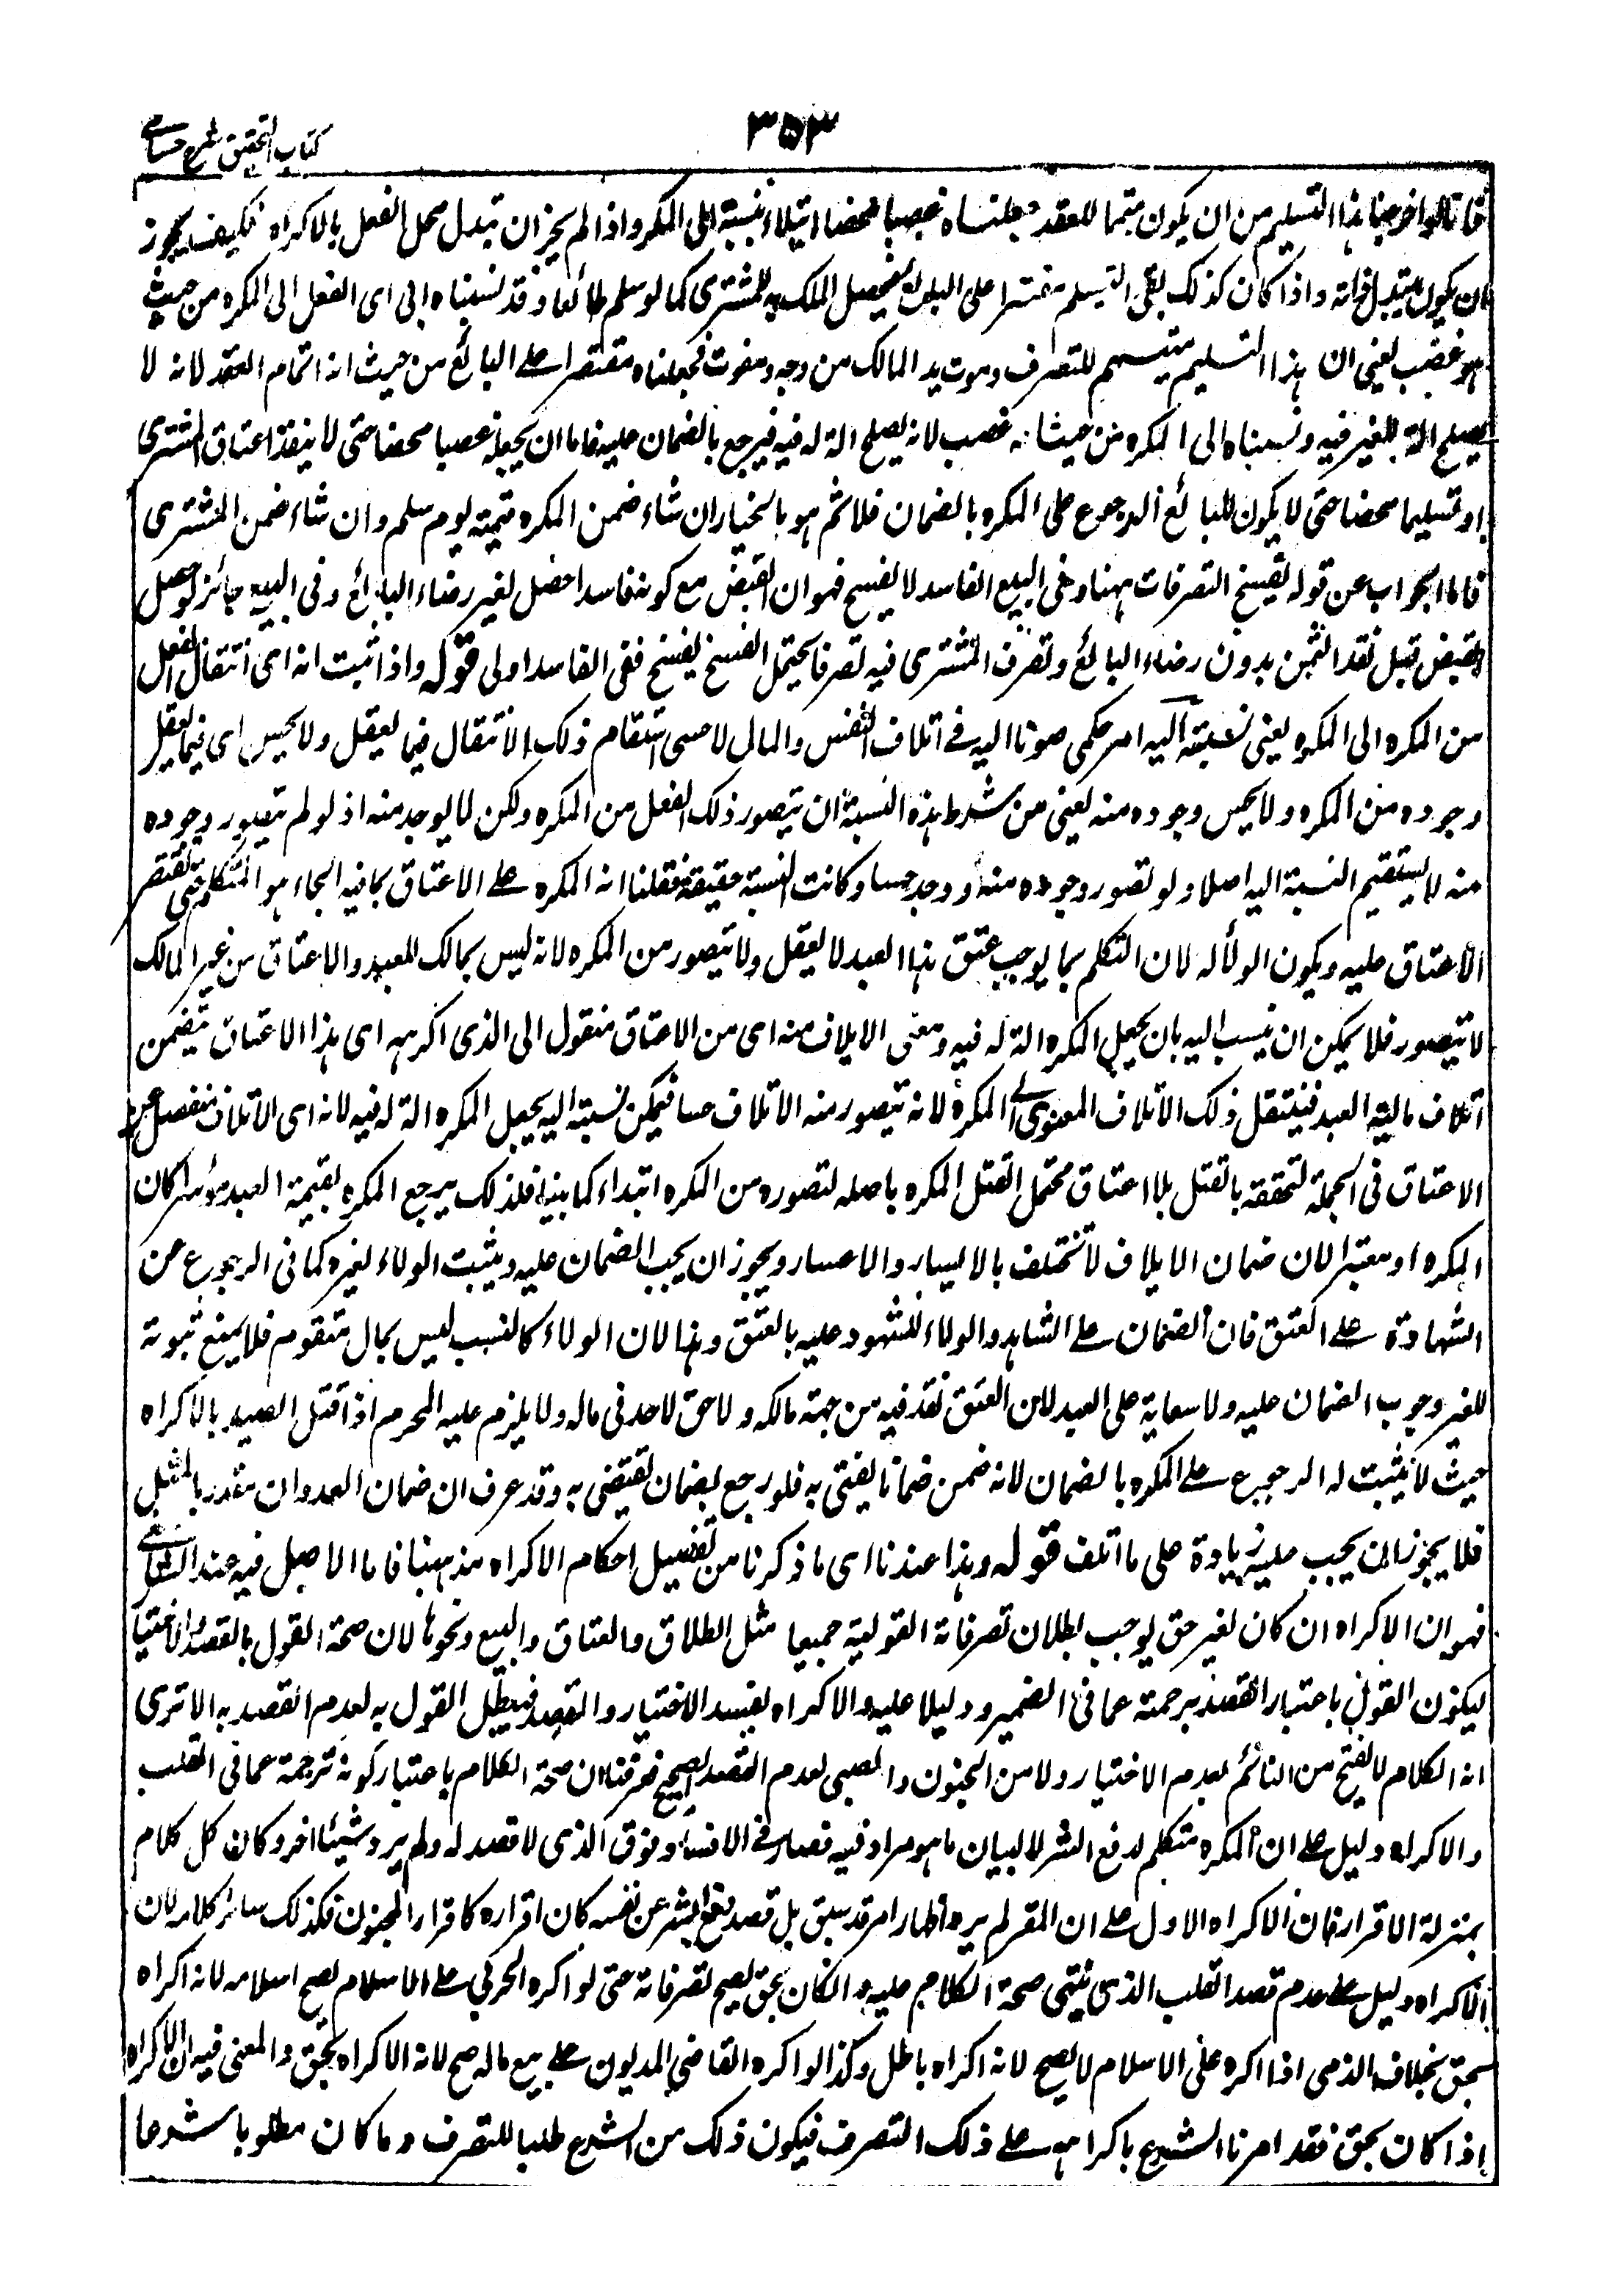 ٣٥٣
كتاب التحقيق شرح حسامي
فانا لو اخرجنا هذا التسليم من ان يكون متمما للعقد جعلناه غصبا محضا ابتداء بنسبة الى المكره واذا لم يجز ان تبدل محل الفعل بالاكراه فكيف يجوز
ان يكون بتبدل ذاته واذا كان كذلك بقى التسليم مقتصرا على البائع فيحصل الملك به للمشترى كما لو سلم طائعا وقد نسبناه اى الفعل الى المكره من حيث
هو غصب يعنى ان هذا التسليم متمم للتصرف ومفوت يد المالك من وجه ومفوت فجعلناه مقتصرا على البائع من حيث انه اتمام العقد لانه لا
يصلح الة للغير فيه ونسبناه الى المكره من حيث انه غصب لانه يصلح الة له فيه فيرجع بالضمان عليه فاما ان يجعله غصبا محضا حتى لا ينفذ اعتاق المشترى
او تسليما محضا حتى لا يكون للبائع الرجوع على المكره بالضمان فلا ثم هو بالخيار ان شاء ضمن المكره قيمته يوم سلم وان شاء ضمن المشترى
فاما الجواب عن قوله يفسخ التصرفات ههنا وفى البيع الفاسد لا يفسخ فهو ان القبض مع كونه فاسدا حصل بغير رضاء البائع وفى البيع جائز لو حصل
القبض قبل نقد الثمن بدون رضاء البائع وتصرف المشترى فيه تصرفا يحتمل الفسخ يفسخ ففى الفاسد اولى قوله واذا ثبت انه اى انتقال الفعل
من المكره الى المكره يعنى نسبته اليه امر حكمى صرنا اليه فى اتلاف النفس والمال لا حسى استقام ذلك الانتقال فيما يعقل ولا يحس اى فيما يعقل
وجوده من المكره ولا يحس وجوده منه يعنى من شرط هذه النسبة ان يتصور ذلك الفعل من المكره ولكن لما يوجد منه اذ لو لم يتصور وجوده
منه لا يستقيم النسبة اليه اصلا ولو تصور وجوده منه ووجد حسا وكانت النسبة حقيقة فقلنا ان المكره على الاعتاق بما فيه الجاء هو المتكلم حتى يقتصر
الاعتاق عليه ويكون الولاء له لان التكلم بما يوجب عتق هذا العبد لا يعقل ولا يتصور من المكره لانه ليس بمالك للعبد والاعتاق من غير المالك
لا يتصور فلا يمكن ان ينسب اليه بان يجعل المكره الة له فيه ومعنى الاتلاف منه اى من الاعتاق منقول الى الذى اكرهه اى هذا الاعتاق يتضمن
اتلاف مالية العبد فينتقل ذلك الاتلاف المعنوى الى المكره لانه يتصور منه الاتلاف حسا فيمكن نسبته اليه بجعل المكره الة له فيه لانه اى الاتلاف منفصل عن
الاعتاق فى الجملة لتحققه بالقتل بلا اعتاق محتمل للنقل الى المكره باصله لتصوره من المكره ابتداء كما بينا فلذلك يرجع المكره بقيمة العبد موسرا كان
المكره او معسرا لان ضمان الاتلاف لا تختلف باليسار والاعسار ويجوز ان يجب الضمان عليه ويثبت الولاء لغيره كما فى الرجوع عن
الشهادة على العتق فان الضمان على الشاهد والولاء للمشهود عليه بالعتق وهذا لان الولاء كالنسب ليس بمال متقوم فلا يمنع ثبوته
للغير وجوب الضمان عليه ولا سعاية على العبد لان العتق نفذ فيه من جهة مالكه ولا حق لاحد فى ماله ولا يلزم عليه المحرم اذا قتل الصيد بالاكراه
حيث لا يثبت له الرجوع على المكره بالضمان لانه ضمن ضمانا يفتى به فلو رجع لضمان يقتضى به وقد عرف ان ضمان العدوان مقدر بالمثل
فلا يجوز ان يجب عليه زيادة على ما اتلف قوله وهذا عندنا اى ما ذكرنا من تفصيل احكام الاكراه مذهبنا فاما الاصل فيه عند الشافعى
فهو ان الاكراه ان كان بغير حق يوجب بطلان تصرفاته القولية جميعا مثل الطلاق والعتاق والبيع ونحوها لان صحة القول بالقصد والاختيار
ليكون القول باعتبار القصد ترجمة عما فى الضمير ودليلا عليه والاكراه يفسد الاختيار والقصد فيبطل القول به لعدم القصد به الا ترى
ان الكلام لا يصح من النائم لعدم الاختيار ولا من المجنون والصبى لعدم القصد الصحيح فعرفنا ان صحة الكلام باعتبار كونه ترجمة عما فى القلب
والاكراه دليل على ان المكره متكلم لدفع الشر لا لبيان ما هو مراد فيه فصار فى الافساد فوق الذى لا قصد له ولم يرد شيئا اخر وكان كل كلام
بمنزلة الاقرار فان الاكراه لما دل على ان المقر لم يرد اظهار امر قد سبق بل قصد دفع الشر عن نفسه كان اقراره كاقرار المجنون فكذلك سائر كلامه لان
الاكراه دليل على عدم قصد القلب الذى يبتنى صحة الكلام عليه وان كان بحق يصح تصرفاته حتى لو اكره الحربى على الاسلام يصح اسلامه لانه اكراه
بحق بخلاف الذمى اذا اكره على الاسلام لا يصح لانه اكراه باطل وكذا لو اكره القاضى المديون على بيع ماله صح لانه الاكراه بحق والمعنى فيه ان الاكراه
اذا كان بحق فقد امرنا الشرع باكراهه على ذلك التصرف فيكون ذلك من الشرع طلبا للتصرف وما كان مطلوبا شرعا